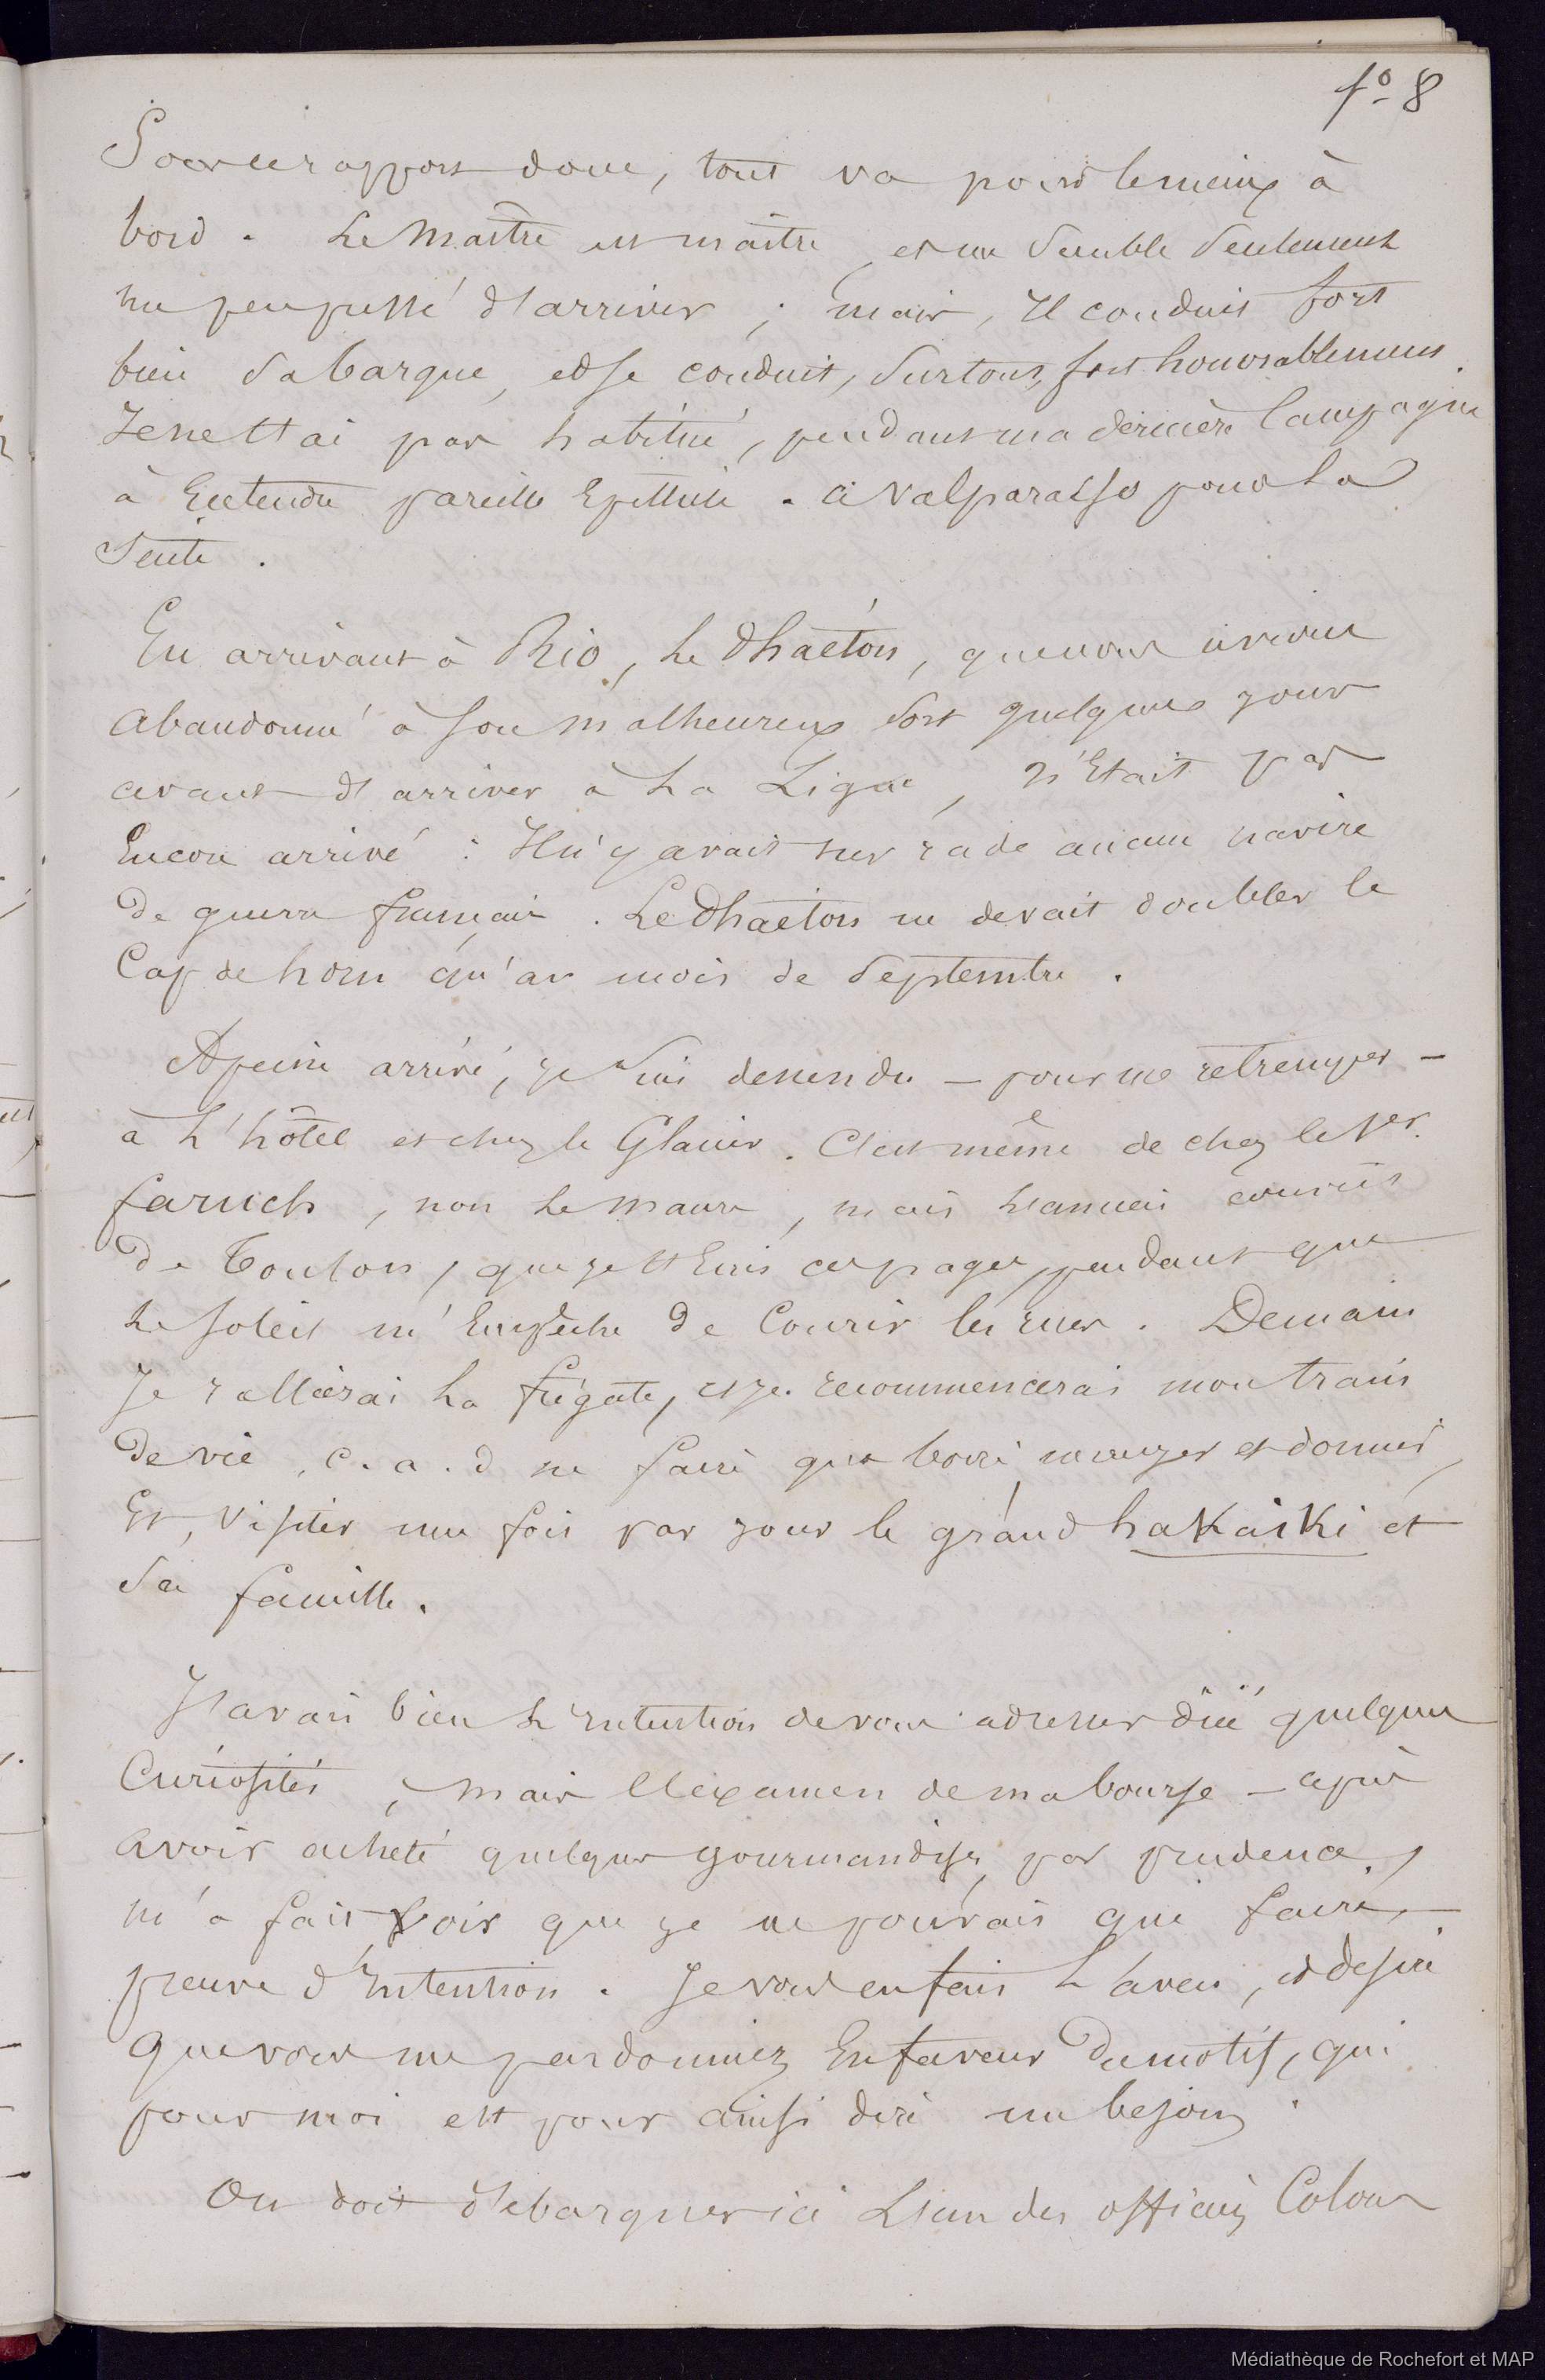 fº 8
Sous ce rapport donc, tout va pour le mieux à
bord. Le Maître est maître, et me semble seulement
un peu pressé d'arriver ; mais, il conduit fort
bien sa barque, et se conduit, surtout, fort honorablement.
Je ne t'ai pas habitué, pendant ma dernière Campagne
à Entendre pareille Epithète. à Valparaiso pour la
suite.
En arrivant à Rio, Le Phaéton, que nous avions
abandonné à son malheureux sort quelques jours
avant d'arriver à La Ligne, n'Etait pas
Encore arrivé : Il n'y avait sur rade aucun navire
de guerre français. Le Phaéton ne devait doubler le
Cap de horn qu'au mois de Septembre.
A peine arrivé, je suis descendu — pour me retremper —
à L'hôtel et chez le Glacier. C'est même de chez le Sr
faruch, non Le maure, mais
de Toulon, que je ces pages, pendant que
Le soleil m'Empêche De Courir les rues. Demain
Je rallierai La frégate, et je recommencerai mon train
De vie, c. a. d ne faire que boire, manger et dormir,
Et, visiter une fois par jour le grand hakaiki et
sa famille.
J'avais bien L'Intention de vous adresser d'ici quelques
Curiosités, mais l'examen de ma bourse — après
avoir acheté quelques gourmandises, par prudence,
m'a fait voir que je ne pouvais que faire
preuve d'Intention. Je vous en fais L'aveu, et désire
que vous me pardonniez En faveur Du motif, qui
pour moi est pour ainsi dire un besoin.
On doit débarquer ici L'un des officiers Colons
Médiathèque de Rochefort et MAP